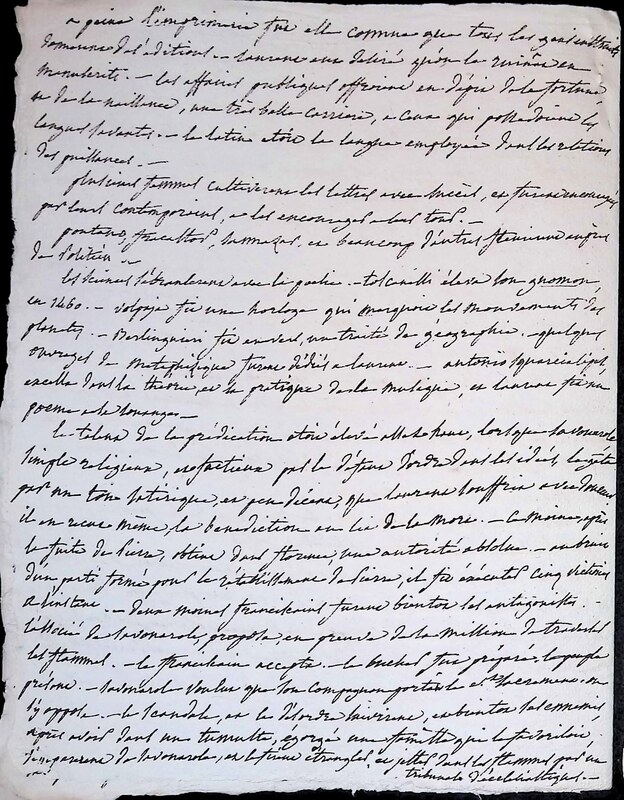 a peine l'imprimerie fut elle connue que tous les gens instruits
donnerent des éditions. — laurent eut désiré qu'on le ruinât en
manuscrits. — les affaires publiques offroient en dépit de la fortune
et de la naissance, une très belle carriere, a ceux qui possedoient les
langues savantes. — le latin etoit la langue employée dans les relations
des puissances. —
plusieurs femmes cultiverent les lettres avec succès, et furent encouragées
par leurs contemporains, et les encouragea a leur tour. —
pontano, fracastor, sannazar, et beaucoup d'autres fleurirent auprès
de Politien —
les sciences s'étendirent avec la poesie. — toscanelli éleva son gnomon,
en 1460. — volpaja fit une horloge qui marquoit les mouvements des
planetes. — Berlinguieri fit en vers, un traité de geographie. — quelques
ouvrages de metaphisique furent dédiés a laurent. — antonio squarcialupi,
excella dans la theorie, et la pratique de la musique, et laurent fit un
poeme a sa louange —
le talent de la prédication etoit élevé, lorsque savonarole
simple religieux, et factieux par le défaut d'ordre dans les idées, le
par un ton satirique, et peu décent, que laurent souffrit avec douceur
il en recut même, la benediction au lit de la mort. — Ce moine, après
la fuite de Pierre, obtint dans florence, une autorité absolue. — au bruit
d'un parti formé pour le rétablissement de Pierre, il fit exécuter cinq victimes
a l'instant. — deux moines franciscains furent bientot ses antagonistes. —
l'associé de savonarole, proposa, en preuve de sa mission de traverser
les flammes. — le franciscain accepta. — le bucher fut préparé, le peuple
présent. — savonarole voulut que son compagnon portât le st sacrement. on
s'y opposa. — le scandale, et le désordre suivirent, et bientot ses ennemis
après avoir dans un tumulte, égorgé une famille qui le favorisoit,
s'emparerent de savonarole, et le firent étrangler, et jetter dans les flammes par un
tribunal d'ecclesiastiques. —